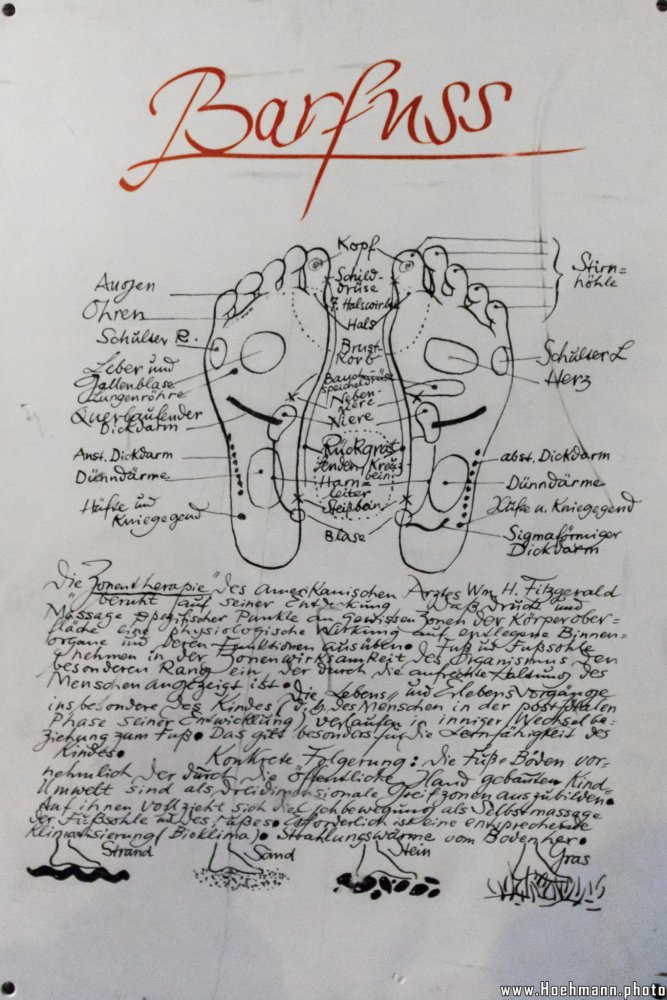 Barfuss
Kopf
Stirn=
höhle
Schild-
drüse
7. Halswirbel
Hals
Augen
Ohren
Schulter R.
Brust-
korb
Schulter L
Herz
Leber und
Gallenblase
Lungenröhre
Bauch
speicheldrüse
Neben-
niere
Niere
Querlaufender
Dickdarm
Rückgrat
Anst. Dickdarm
abst. Dickdarm
Lenden/Kreuz
bein
Dünndärme
Harn-
leiter
Dünndärme
Steißbein
Hüfte und
Kniegegend
Hüfte u. Kniegegend
Blase
Sigmaförmiger
Dickdarm
Die „Zonentherapie" des amerikanischen Arztes Wm. H. Fitzgerald
beruht auf seiner Entdeckung daß Druck und
Massage spezifischer Punkte an gewissen Zonen der Körperober=
fläche eine physiologische Wirkung auf entlegene Binnen=
organe und deren Funktionen ausüben. Fuß und Fußsohle
nehmen in der Zonenwirksamkeit des Organismus den
besonderen Rang ein der durch die aufrechte Haltung des
Menschen angezeigt ist. Die „Lebens" und Erlebensvorgänge
insbesondere des Kindes (d.h. des Menschen in der postfötalen
Phase seiner Entwicklung) verlaufen in inniger Wechselbe=
ziehung zum Fuß. Das gilt besonders für die Lernfähigkeit des
Kindes.
Konkrete Folgerung: die Fuß=Böden vor-
nehmlich der durch die öffentliche Hand gebauten Kind-
Umwelt sind als dreidimensionale Greifzonen auszubilden.
Auf ihnen vollzieht sich die Ichbewegung als Selbstmassage
der Fußsohle und des Fußes. Erforderlich ist eine entsprechende
Klimatisierung (Bioklima). Strahlungswärme vom Boden her.
Strand
Sand
Stein
Gras
www.Hoehmann.photo